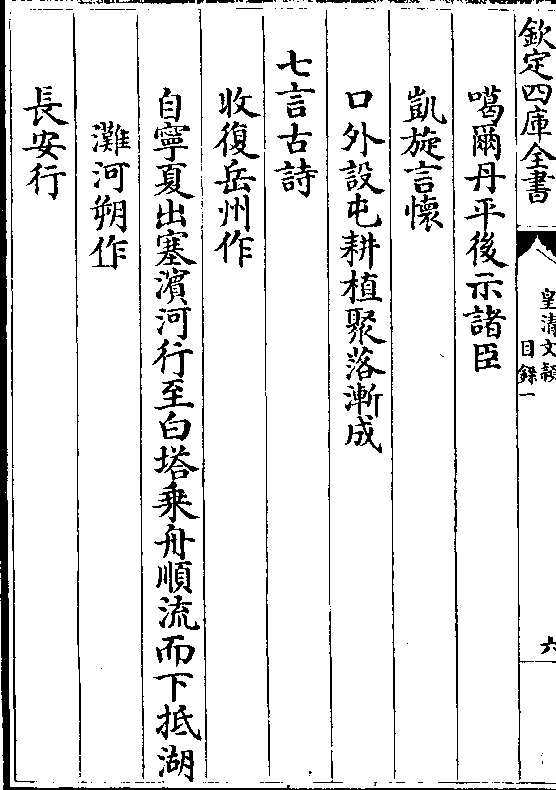 欽定四庫全書
皇清文穎
目錄一
六
噶爾丹平後示諸臣
凱旋言懷
口外設屯耕植聚落漸成
七言古詩
收復岳州作
自寧夏出塞濱河行至白塔乗舟順流而下抵湖
灘河朔作
長安行